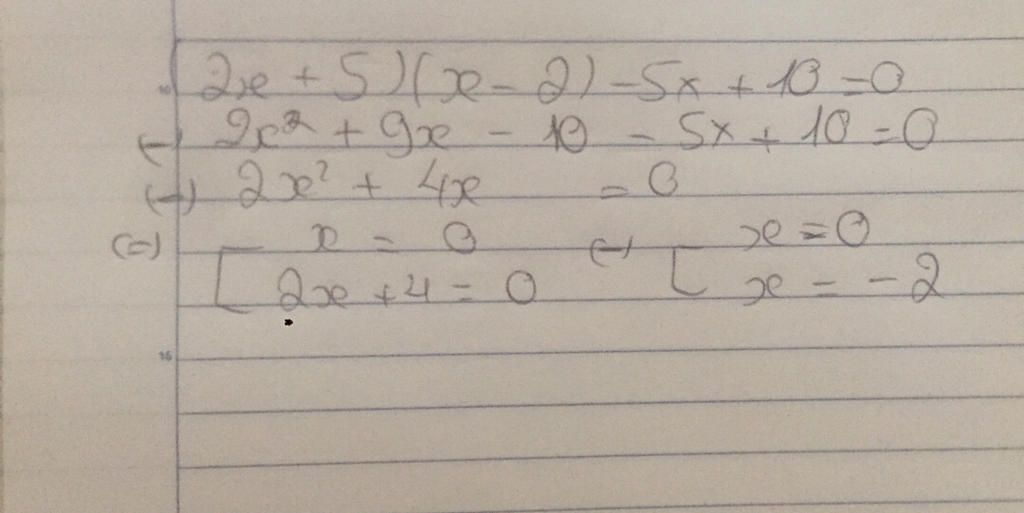 (2x + 5)(x - 2) - 5x + 10 = 0
(=) 2x² + 9x - 10 - 5x + 10 = 0
(=) 2x² + 4x = 0
(=) [ x = 0 (=) [ x = 0
2x + 4 = 0 x = -2
15